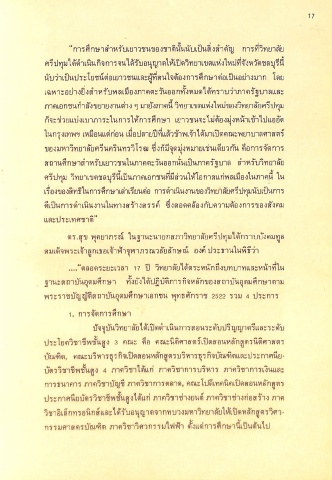 17
"การศึกษาสำหรับเยาวชนของชาตินั้นนับเป็นสิ่งสำคัญ การที่วิทยาลัย
ศรีปทุมได้ดำเนินกิจการจนได้รับอนุญาตให้เปิดวิทยาเขตแห่งใหม่ที่จังหวัดชลบุรีนี้
นับว่าเป็นประโยชน์ต่อเยาวชนและผู้ที่สนใจต้องการศึกษาต่อเป็นอย่างมาก โดย
เฉพาะอย่างยิ่งสำหรับพลเมืองภาคตะวันออกทั้งหมดได้ทราบว่าภาครัฐบาลและ
ภาคเอกชนกำลังขยายงานต่าง ๆ มายังภาคนี้ วิทยาเขตแห่งใหม่ของวิทยาลัยศรีปทุม
ก็จะช่วยแบ่งเบาภาระในการให้การศึกษา เยาวชนจะไม่ต้องมุ่งหน้าเข้าไปแออัด
ในกรุงเทพฯ เหมือนแต่ก่อน เมื่อปลายปีที่แล้วข้าพเจ้าได้มาเปิดคณะพยาบาลศาสตร์
ของมหาวิทยาลัยศรีนครินทรวิโรฒ ซึ่งก็มีจุดมุ่งหมายเช่นเดียวกัน คือการจัดการ
สถานศึกษาสำหรับเยาวชนในภาคตะวันออกนั้นเป็นภาครัฐบาล สำหรับวิทยาลัย
ศรีปทุม วิทยาเขตชลบุรีนี้เป็นภาคเอกชนที่มีส่วนให้โอกาสแก่พลเมืองในภาคนี้ ใน
เรื่องของสิทธิในการศึกษาเล่าเรียนต่อ การดำเนินงานของวิทยาลัยศรีปทุมนับเป็นการ
ดีเป็นการดำเนินงานในทางสร้างสรรค์ ซึ่งสอดคล้องกับความต้องการของสังคม
และประเทศชาติ"
ดร.สุข พุคยาภรณ์ ในฐานะนายกสภาวิทยาลัยศรีปทุมได้กราบบังคมทูล
สมเด็จพระเจ้าลูกเธอเจ้าฟ้าจุฬาภรณวลัยลักษณ์ องค์ ประธานในพิธีว่า
...."ตลอดระยะเวลา 17 ปี วิทยาลัยได้ตระหนักถึงบทบาทและหน้าที่ใน
ฐานะสถาบันอุดมศึกษา ทั้งยังได้ปฏิบัติภารกิจหลักของสถาบันอุดมศึกษาตาม
พระราชบัญญัติสถาบันอุดมศึกษาเอกชน พุทธศักราช 2522 รวม 4 ประการ
1. การจัดการศึกษา
ปัจจุบันวิทยาลัยได้เปิดดำเนินการสอนระดับปริญญาตรีและระดับ
ประโยควิชาชีพชั้นสูง 3 คณะ คือ คณะนิติศาสตร์เปิดสอนหลักสูตรนิติศาสตร์
บัณฑิต, คณะบริหารธุรกิจเปิดสอนหลักสูตรบริหารธุรกิจบัณฑิตและประกาศนีย-
บัตรวิชาชีพชั้นสูง 4 ภาควิชาได้แก่ ภาควิชาการบริหาร ภาควิชาการเงินและ
การธนาคาร ภาควิชาบัญชี ภาควิชาการตลาด, คณะโปลีเทคนิคเปิดสอนหลักสูตร
ประกาศนียบัตรวิชาชีพชั้นสูงได้แก่ ภาควิชาช่างยนต์ ภาควิชาช่างก่อสร้าง ภาค
วิชาอิเล็กทรอนิกส์และได้รับอนุญาตจากทบวงมหาวิทยาลัยให้เปิดหลักสูตรวิศว-
กรรมศาสตรบัณฑิต ภาควิชาวิศวกรรมไฟฟ้า ตั้งแต่การศึกษานี้เป็นต้นไป